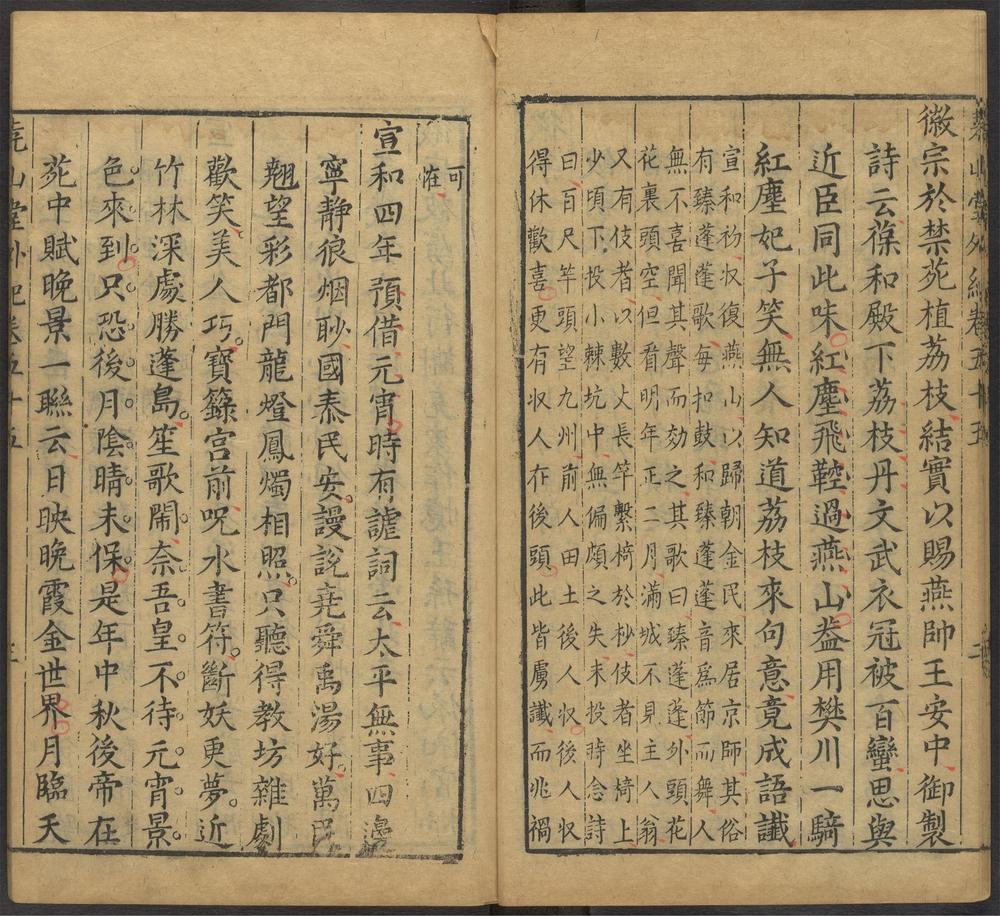 堯山堂外紀卷五十五
徽宗於禁苑植荔枝結實以賜燕帥王安中御製
詩云葆和殿下荔枝丹文武衣冠被百蠻思與
近臣同此味紅塵飛鞚過燕山葢用樊川一騎
紅塵妃子笑無人知道荔枝來句意竟成語讖
宣和初収復燕山以歸朝金民來居京師其俗
有臻蓬蓬歌每扣鼓和臻蓬蓬音爲節而舞人
無不喜聞其聲而効之其歌曰臻蓬蓬外頭花
花裏頭空但看明年正二月滿城不見主人翁
又有伎者以數丈長竿繫椅於杪伎者坐椅上
少頃下投小棘坑中無偏頗之失未投時念詩
曰百尺竿頭望九州前人田土後人収後人収
得休歡喜更有収人在後頭此皆虜讖而兆禍
可恠
宣和四年預借元宵時有謔詞云太平無事四邊
寧靜狼烟眇國泰民安謾說堯舜禹湯好萬民
翹望彩都門龍燈鳳燭相照只聽得教坊雜劇
歡笑美人巧寶籙宮前呪水書符斷妖更夢近
竹林深處勝蓬島笙歌鬧奈吾皇不待元宵景
色來到只恐後月陰晴未保是年中秋後帝在
苑中賦晚景一聯云日映晚霞金世界月臨天
堯山堂外紀卷五十五